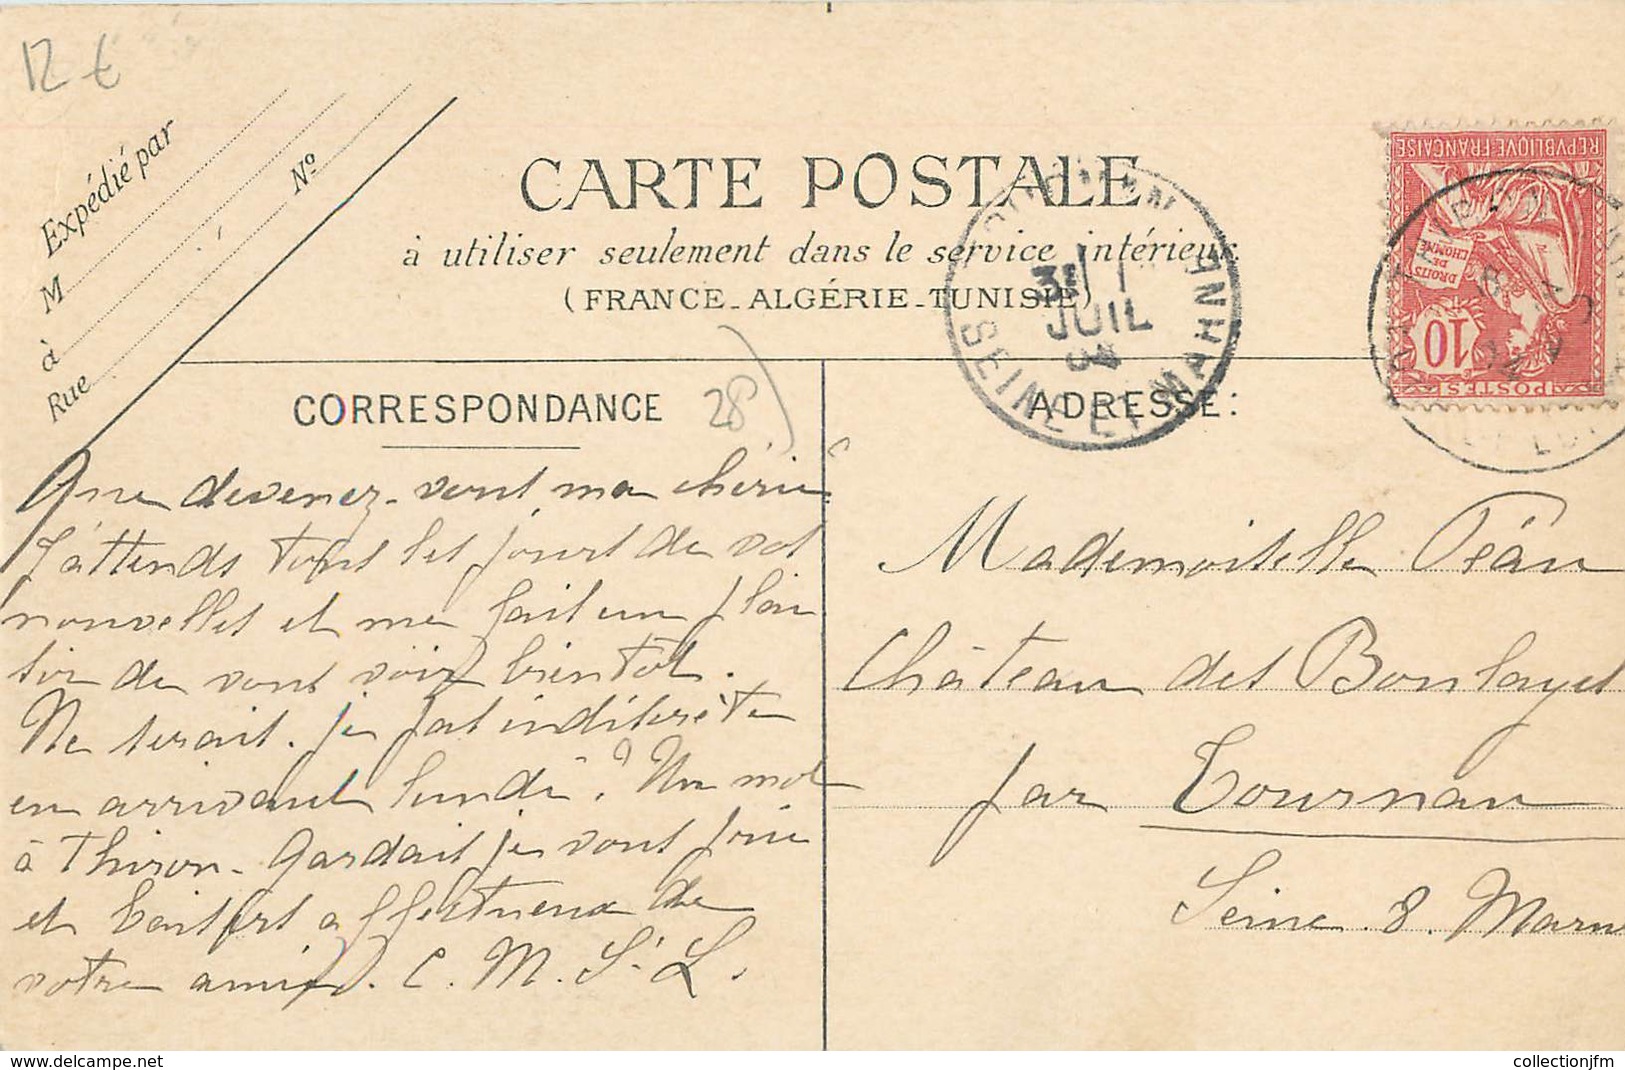 12 €
Expédié par
M
à
Rue
Nº
CARTE POSTALE
à utiliser seulement dans le service intérieur
(FRANCE_ALGÉRIE_TUNISIE)
REPVBLIQVE FRANÇAISE
DROITS
DE
L'HOMME
10
POSTES
31
JUIL
04
SEINE ET MARNE
CORRESPONDANCE
28
ADRESSE:
Que devenez-vous ma chérie
J'attends tous les jours de vos
nouvelles et me fait un plai
sir de vous voir bientôt.
Ne serait-je pas indiscrète
en arrivant lundi? Un mot
à Thiron-Gardais je vous prie
et baisers affectueux de
votre amie. C. M. S. L.
Mademoiselle Péan
Château des Boulayes
par Tournan
Seine & Marne
www.delcampe.net
collectionjfm